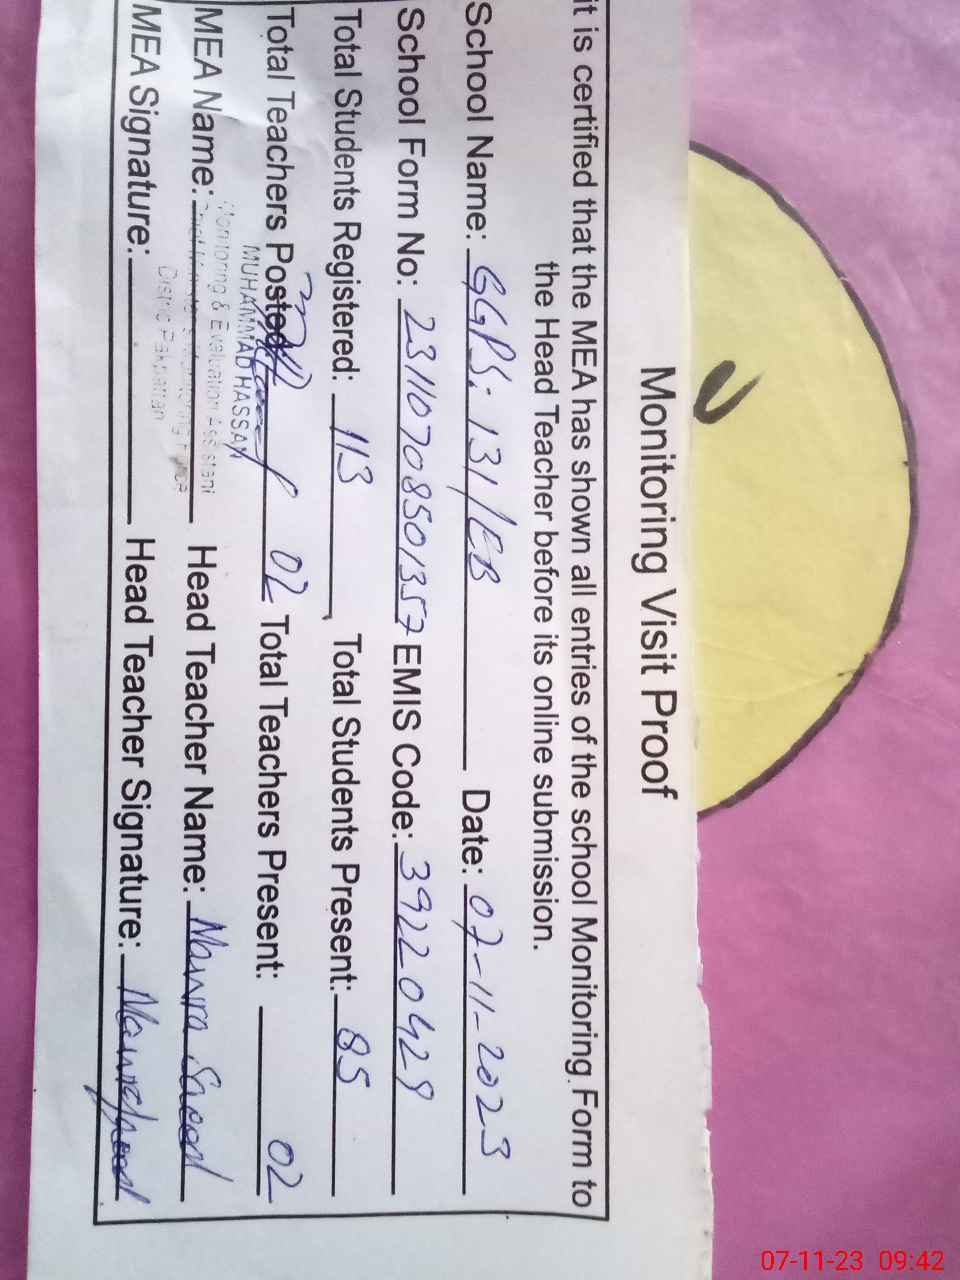 Monitoring Visit Proof
it is certified that the MEA has shown all entries of the school Monitoring Form to
the Head Teacher before its online submission.
School Name: GGPS: 131/EB Date: 07-11-2023
School Form No: 23110708501357 EMIS Code: 39220429
Total Students Registered: 113, Total Students Present: 85
Total Teachers Posted 02 Total Teachers Present: 02
MUHAMMAD HASSAN
Monitoring & Evaluation Assistant
District Pakpattan
MEA Name: Head Teacher Name: Nawra Saeed
MEA Signature: Head Teacher Signature:
07-11-23 09:42